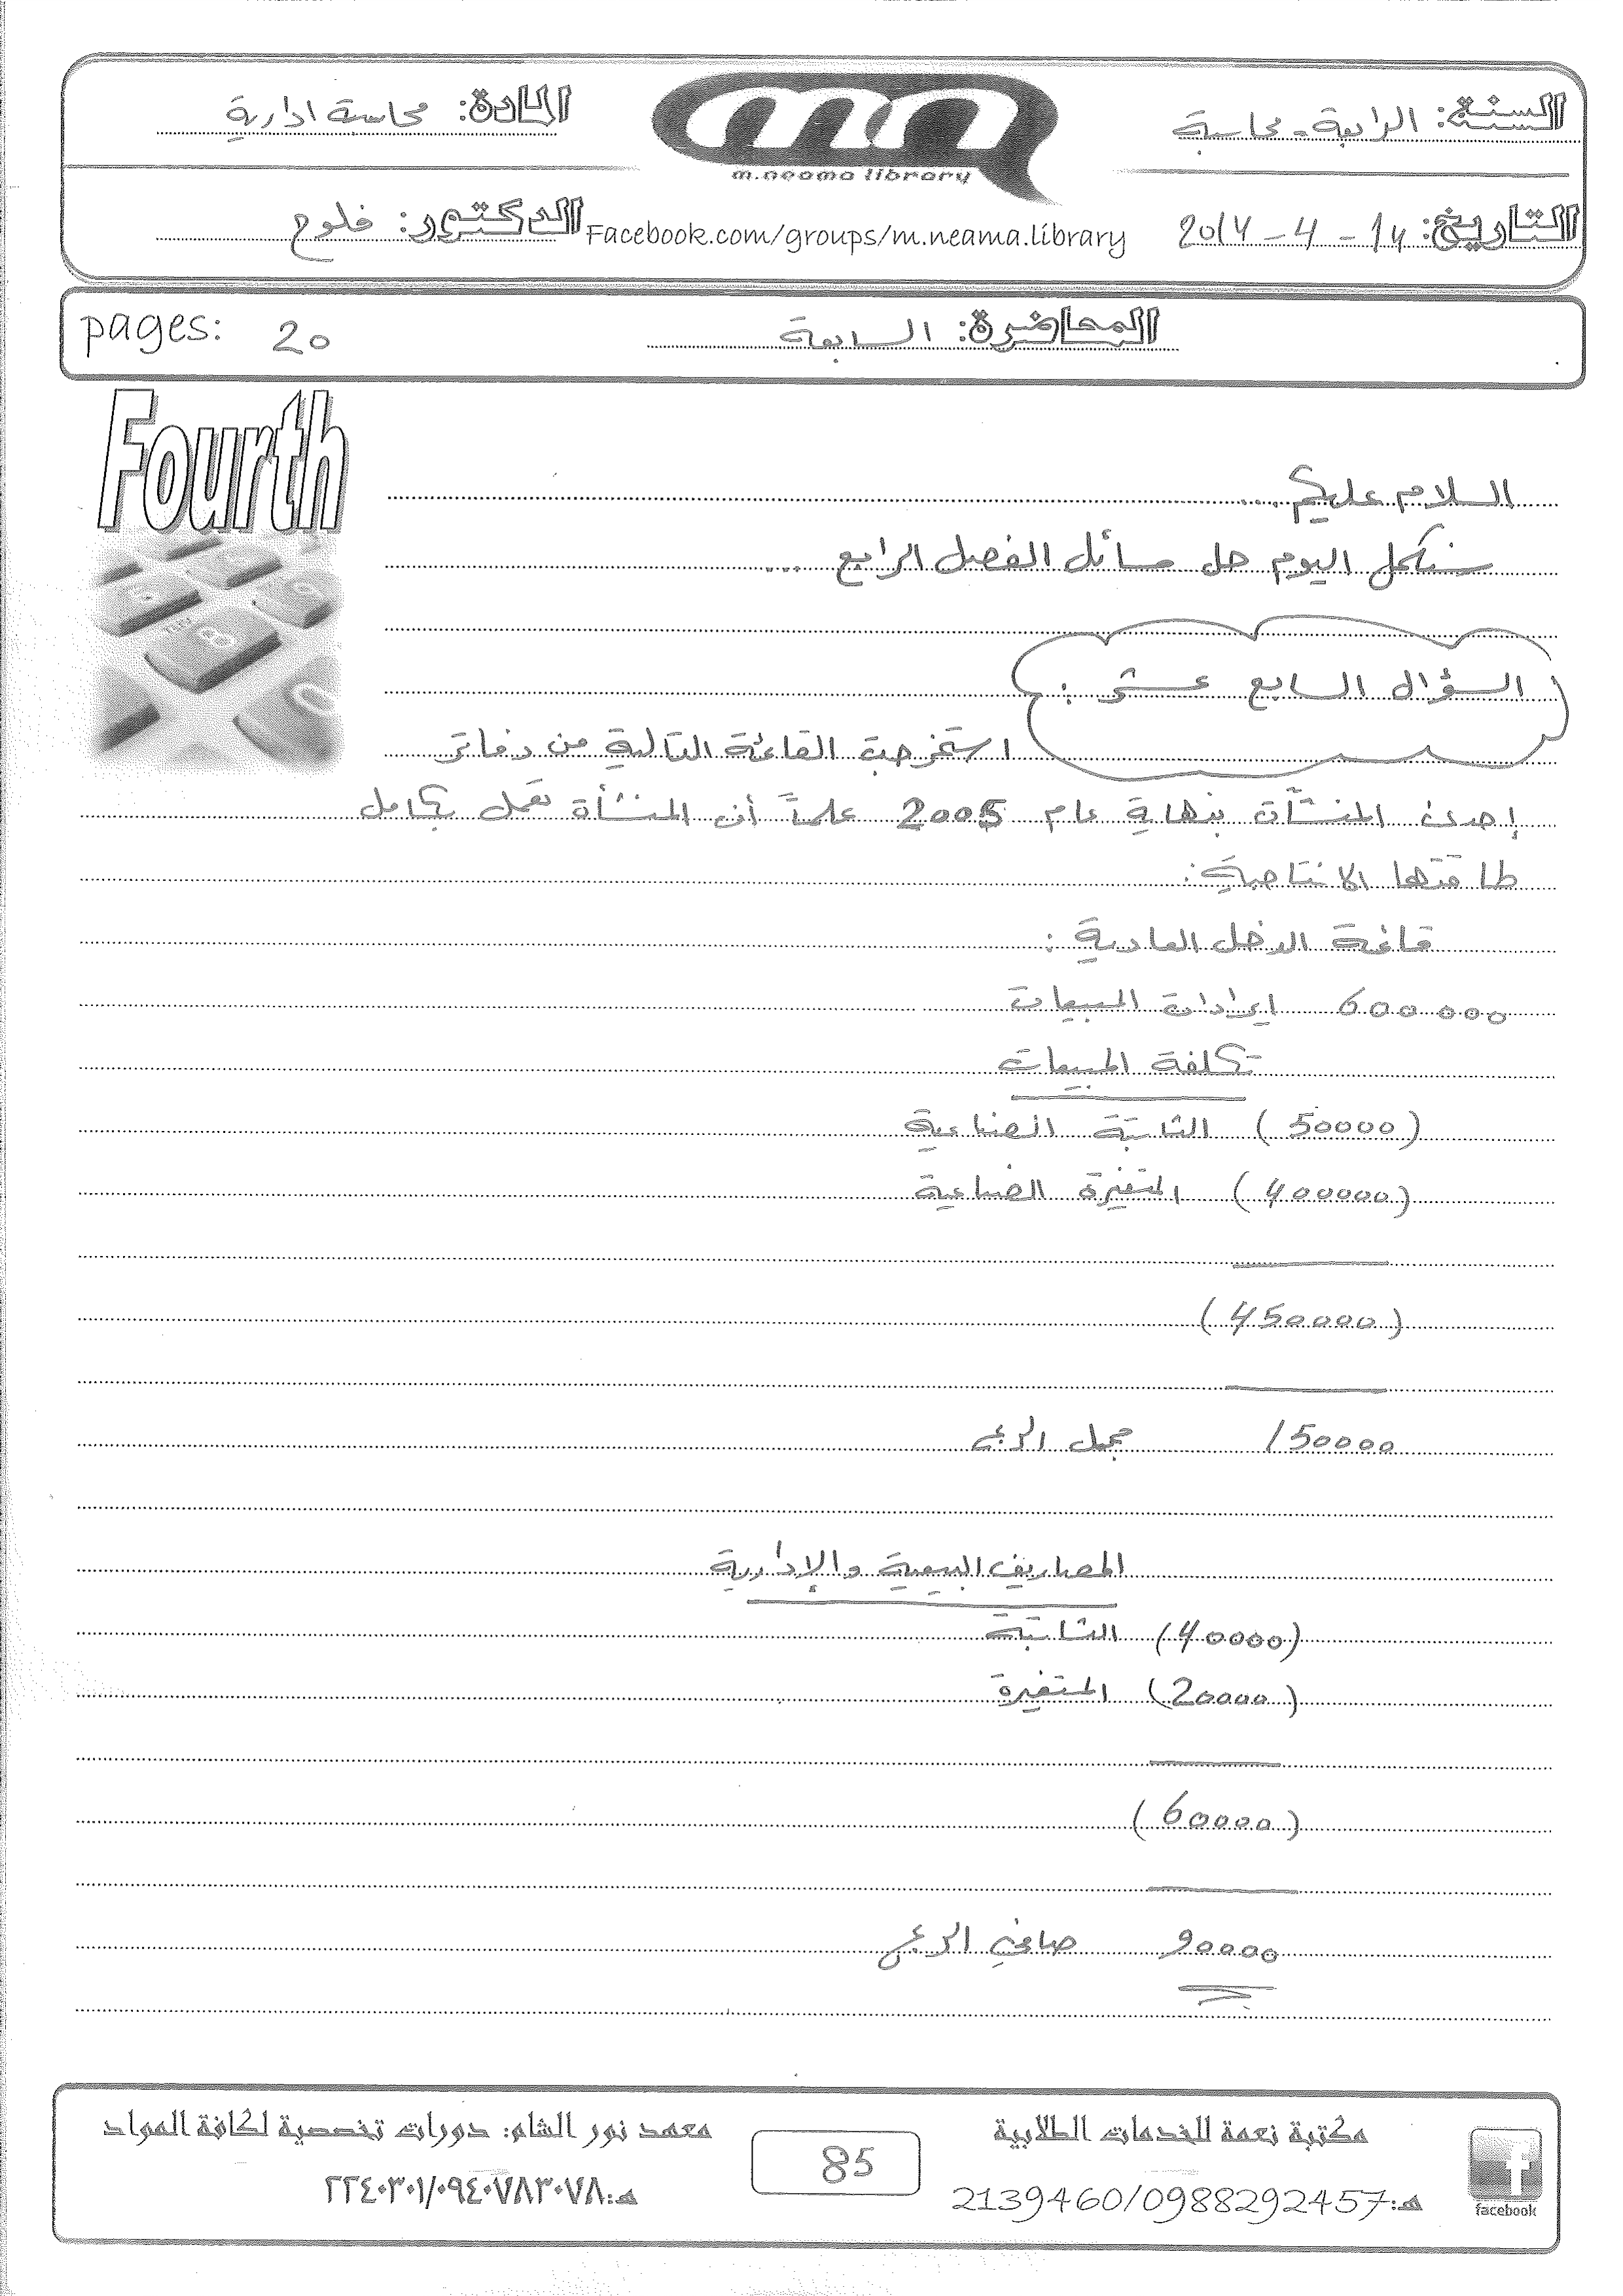 السنة: الرابعة - محاسبة
المادة: محاسبة ادارية
m.neama library
التاريخ: 14 - 4 - 2014
Facebook.com/groups/m.neama.library
الدكتور: فلوح
المحاضرة: السابعة
pages: 20
Fourth
السلام عليكم ...
سنكمل اليوم حل مسائل الفصل الرابع ...
السؤال السابع عشر :
استخرجت القائمة التالية من دفاتر
إحدى المنشآت بنهاية عام 2005 علماً أن المنشأة تعمل بكامل
طاقتها الانتاجية:
قائمة الدخل العادية :
600000 ايرادات المبيعات
تكلفة المبيعات
(50000) الثابتة الصناعية
(400000) المتغيرة الصناعية
(450000)
150000 مجمل الربح
المصاريف البيعية والإدارية
(40000) الثابتة
(20000) المتغيرة
(60000)
90000 صافي الربح
مكتبة نعمة للخدمات الطلابية
هـ:2139460/0988292457
facebook
85
معهد نور الشام: دورات تخصصية لكافة المواد
هـ:٢٢٤٠٣٠١/٠٩٤٠٧٨٣٠٧٨